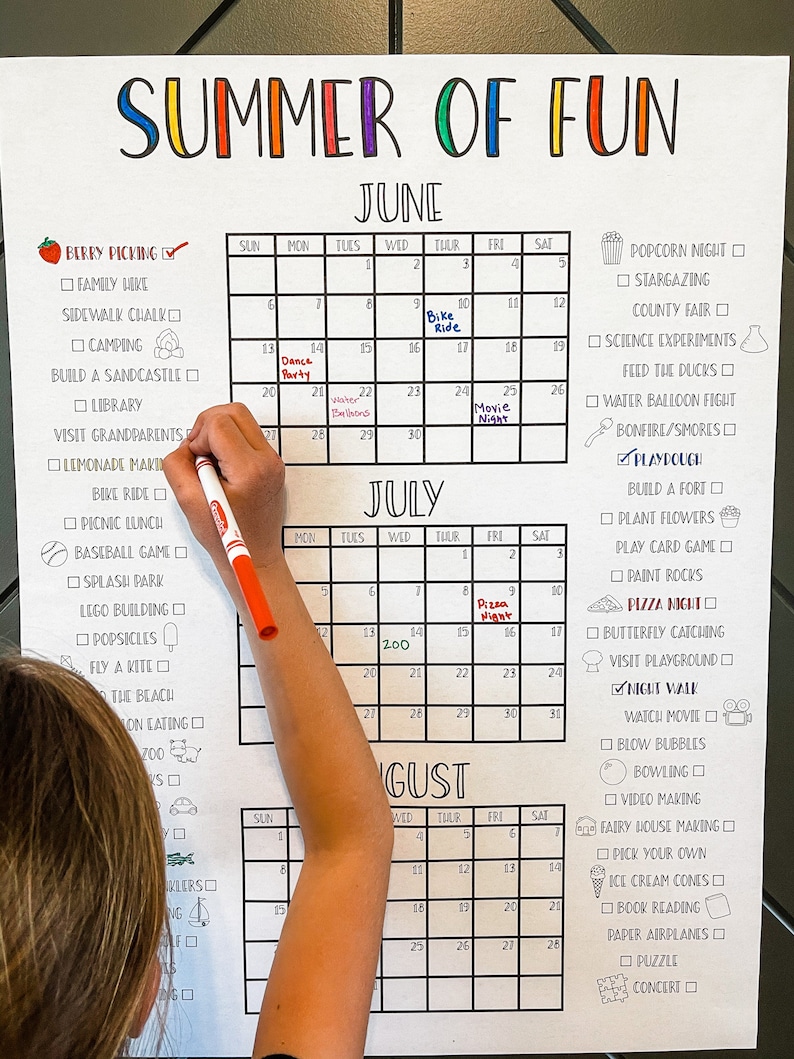 SUMMER OF FUN
JUNE
BERRY PICKING
FAMILY HIKE
SIDEWALK CHALK
CAMPING
BUILD A SANDCASTLE
LIBRARY
VISIT GRANDPARENTS
LEMONADE
BIKE RIDE
PICNIC LUNCH
BASEBALL GAME
SPLASH PARK
LEGO BUILDING
POPSICLES
FLY A KITE
THE BEACH
EATING
ZOO
SUN MON TUES WED THUR FRI SAT
1 2 3 4 5
6 7 8 9 10 11 12
Bike
Ride
13 14 15 16 17 18 19
Dance
Party
20 21 22 23 24 25 26
Water
Balloons
Movie
Night
27 28 29 30
JULY
MON TUES WED THUR FRI SAT
1 2 3
5 6 7 8 9 10
Pizza
Night
12 13 14 15 16 17
ZOO
20 21 22 23 24
27 28 29 30 31
SUN WED THUR FRI SAT
1 4 5 6 7
8 11 12 13 14
15 18 19 20 21
25 26 27 28
POPCORN NIGHT
STARGAZING
COUNTY FAIR
SCIENCE EXPERIMENTS
FEED THE DUCKS
WATER BALLOON FIGHT
BONFIRE/SMORES
PLAYDOUGH
BUILD A FORT
PLANT FLOWERS
PLAY CARD GAME
PAINT ROCKS
PIZZA NIGHT
BUTTERFLY CATCHING
VISIT PLAYGROUND
NIGHT WALK
WATCH MOVIE
BLOW BUBBLES
BOWLING
VIDEO MAKING
FAIRY HOUSE MAKING
PICK YOUR OWN
ICE CREAM CONES
BOOK READING
PAPER AIRPLANES
PUZZLE
CONCERT
Crayola